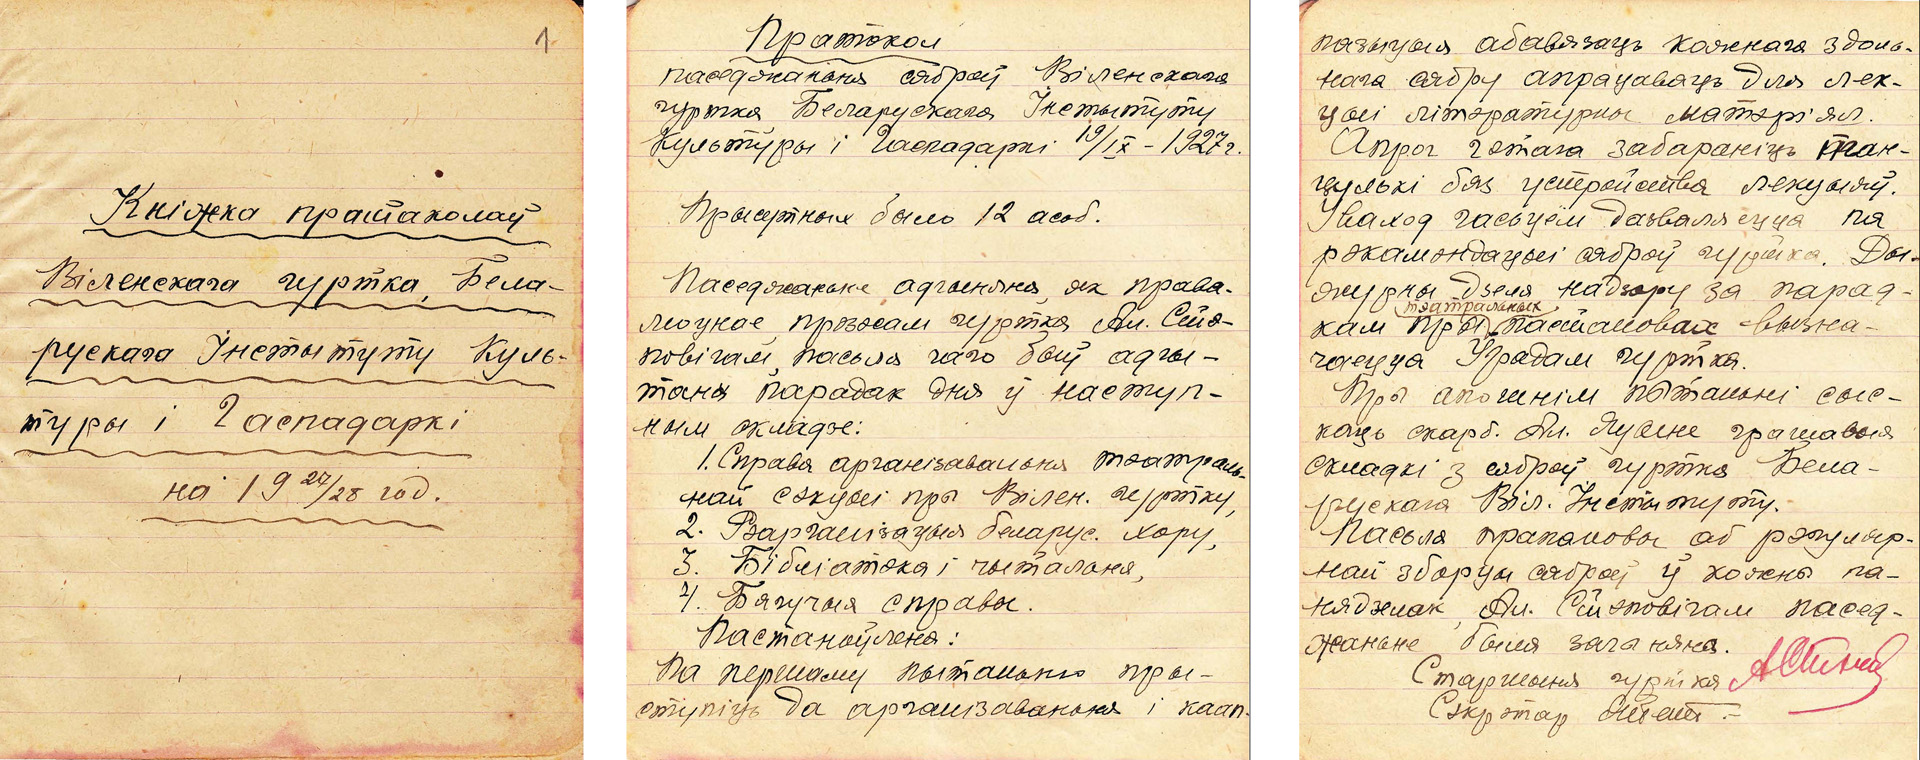 1
Кніжка пратаколаў
Віленскага гуртка, Бела-
рускага Інстытуту Куль-
туры і Гаспадаркі
на 19 27/28 год.
Пратокол
паседжаньня сяброў Віленскага
гуртка Беларускага Інстытуту
Культуры і Гаспадаркі 19/IX – 1927г.
Прысутных было 12 асоб.
Паседжаньне адчыняна, як права-
мочнае, прэзэсам гуртка Ал. Стэ-
повічам, пасьля чаго быў адчы-
таны парадак дня ў наступ-
ным складзе:
1. Справа арганізаваньня тэатраль-
най сэкцыі пры Вілен. гуртку,
2. Рэарганізацыя беларус. хору,
3. Бібліатэка і чытальня,
4. Бягучыя справы.
Пастаноўлена:
Па першаму пытаньню пры-
ступіць да арганізаваньня і каап-
пазыцыя абавязаць кожнага здоль-
нага сябру апрацаваць для лек-
цыі літэратурны матэр'ял.
Апроч гэтага забараніць тан-
цулькі без устройства лекцыяў.
Уваход гасьцём дазваляецца па
рэкамэндацыі сяброў гуртка. Ды-
журны дзеля надзору за парад-
кам пры тэатральных пастаноўках вызна-
чаецца Урадам гуртка.
Пры апошнім пытаньні сыс-
каць скарб. Ал. грашавыя
складкі з сяброў гуртка Бела-
рускага Віл. Інстытуту.
Пасьля прапановы аб рэгуляр-
най зборцы сяброў ў кожны па-
нядзелак, Ал. Стэповічам пасед-
жаньне было зачаняна.
Старшыня гуртка
Сэкрэтар